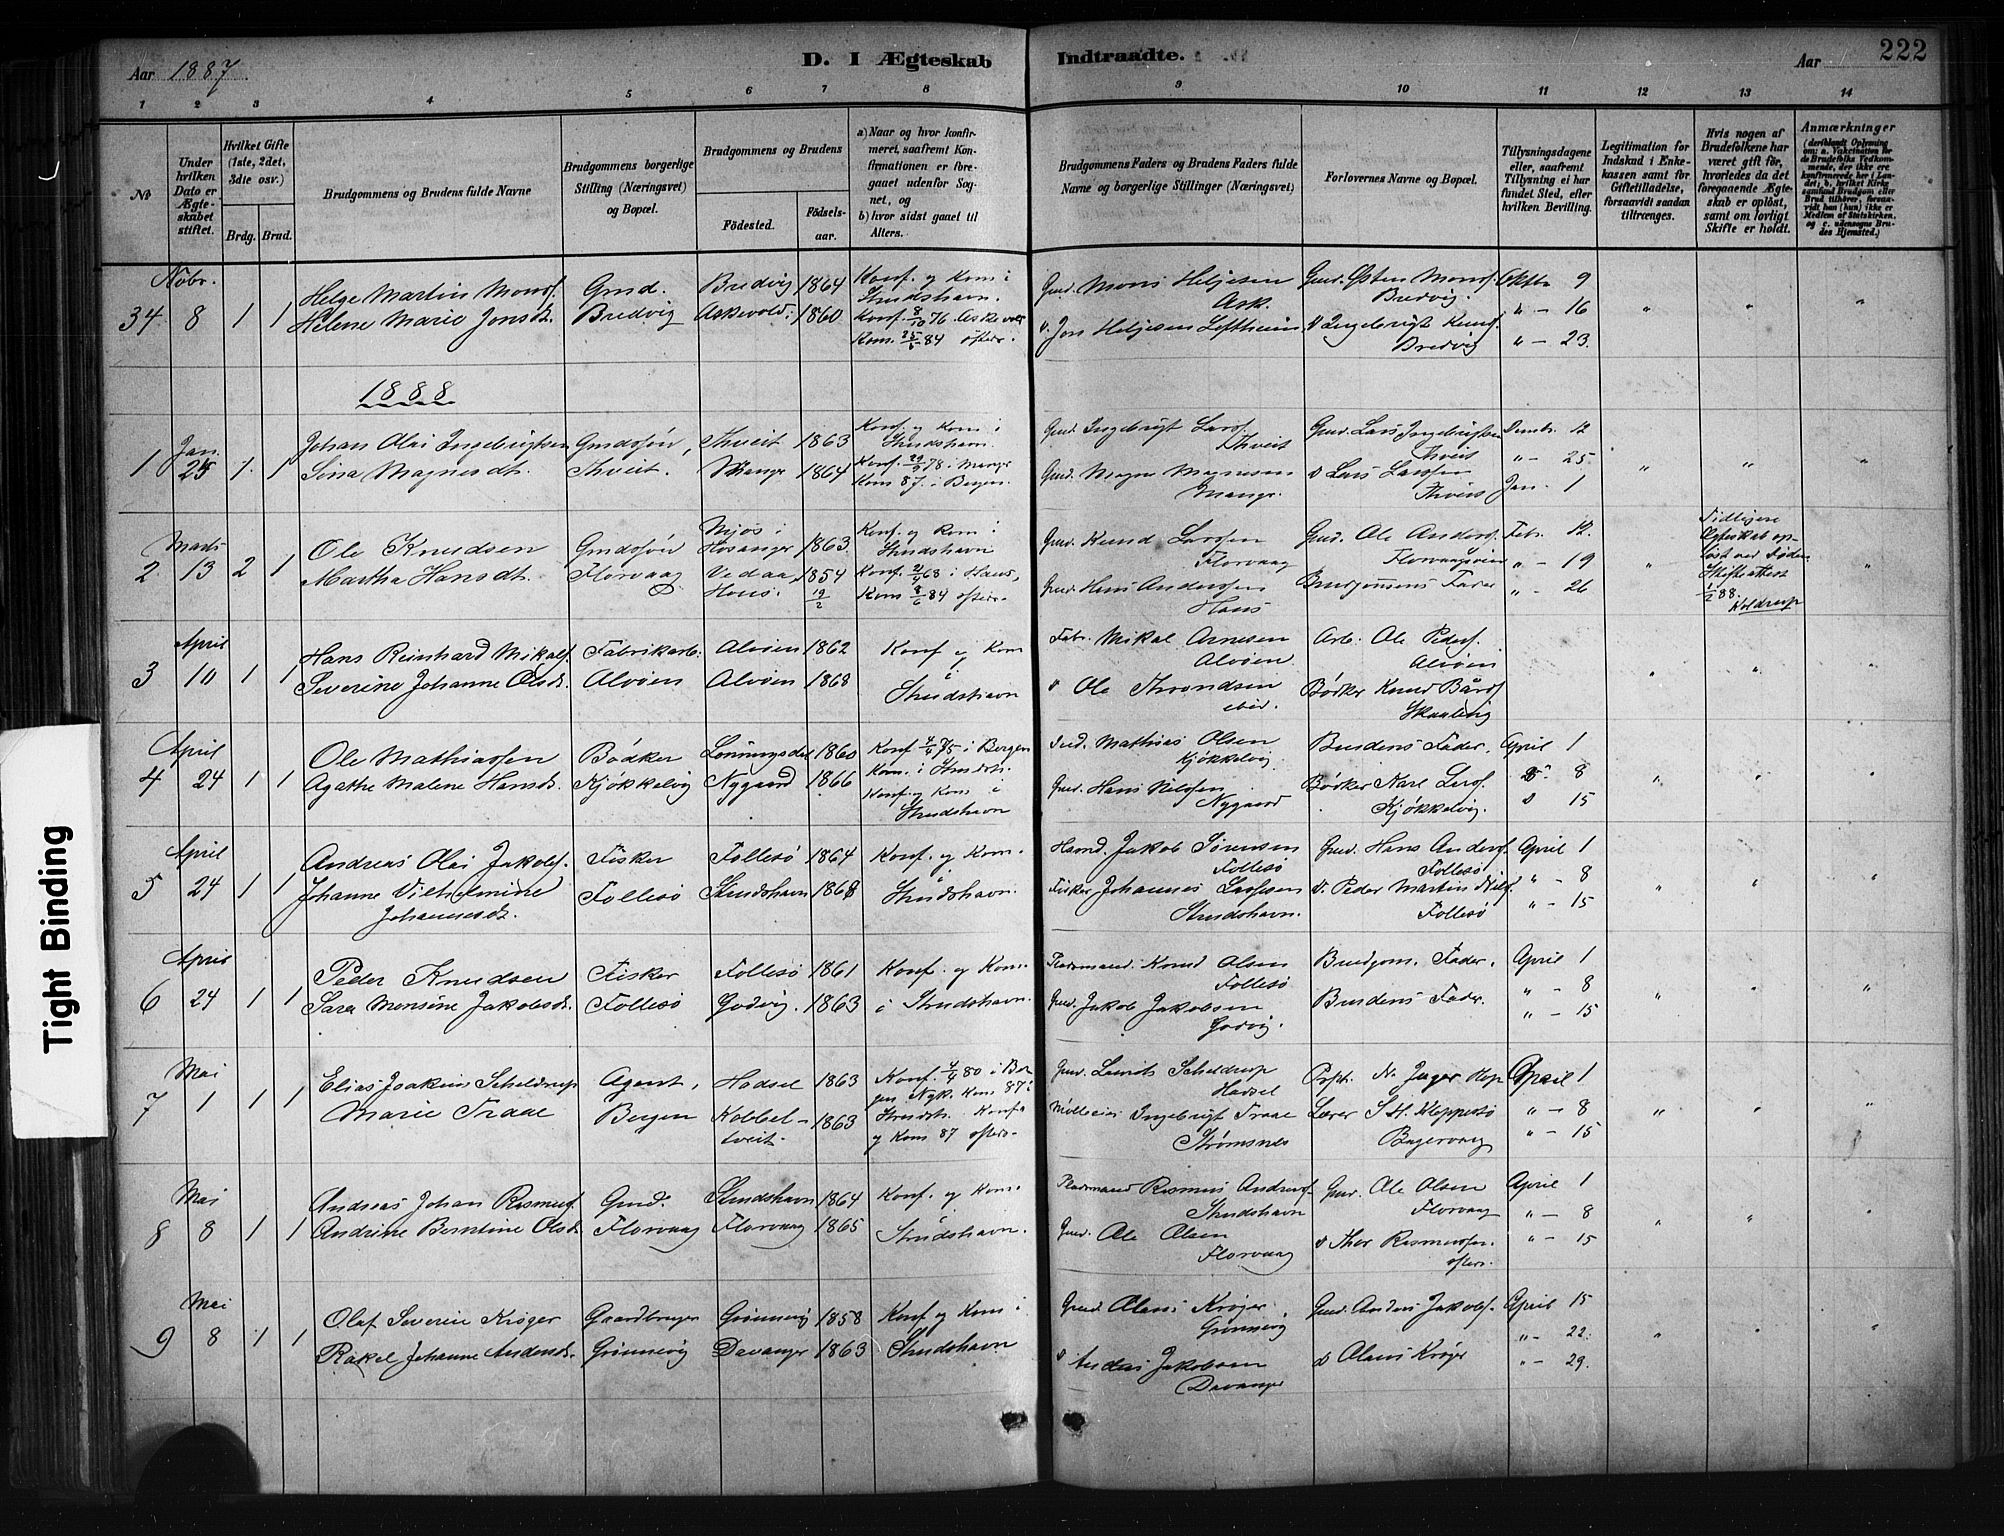 Aar 1887
D. I Ægteskab Indtraadte.
Aar
222
1 2 3 4 5 6 7 8 9 10 11 12 13 14
No
Under hvilken Dato er Ægteskabet stiftet.
Hvilket Gifte (1ste, 2det, 3die osv.)
Brdg. Brud.
Brudgommens og Brudens fulde Navne
Brudgommens borgerlige Stilling (Næringsvei) og Bopæl.
Brudgommens og Brudens
Fødested.
Fødselsaar.
a) Naar og hvor konfirmeret, saafremt Konfirmationen er foregaaet udenfor Sognet, og
b) hvor sidst gaaet til Alters.
Brudgommens Faders og Brudens Faders fulde Navne og borgerlige Stillinger (Næringsvei)
Forlovernes Navne og Bopæl.
Tillysningsdagene eller, saafremt Tillysning ei har fundet Sted, efter hvilken Bevilling.
Legitimation for Indskud i Enkekassen samt for Giftetilladelse, forsaavidt saadan tiltrænges.
Hvis nogen af Brudefolkene har været gift før, hvorledes da det foregaaende Ægteskab er opløst, samt om lovligt Skifte er holdt.
Anmærkninger
Novbr.
34 8 1 1
Helge Martin Monsf. Gmd. Bredvig 1864 Konf. og Kom i Strudshavn.
Helene Marie Jonsdt. Bredvig Askevold. 1860 Konf. 8/10 76 Askevold Kom. 25/6 84 ofters.
Gmd. Mons Heljesen Ask. Gmd. Østen Monsf. Bredvig. Oktbr 9
" Jon Heljesen Loftheim " Ingebrigt Knudf. Bredvig " – 16
" – 23.
1888
Jan.
1 25 1. 1
Johan Olai Ingebrigtsen Gmdssøn, Thveit 1863 Konf. og Kom i Strudshavn.
Sina Magnesdt. Thveit. Manger 1864 Konf. 29/9 78 i Manger Kom 87. i Bergen.
Gmd. Ingebrigt Larsf. Thveit Gmd. Lars Ingebrigtsen Thveit Decmbr. 12
Gmd. Magne Magnesen Mange. " Lars Larssen Thveit " – 25
Jan. 1
Marts
2. 13 2 1
Ole Knudsen Gmdssøn Mjøs i Hosanger 1863. Konf. og Kom i Strudshavn
Martha Hansdt. Florvaag Vedaa Hous. 1854 19/2 Konf. 21/4 68 i Haus, Kom 8/6 84 ofters.
Gmd. Knud Larssen Florvaag Gmd. Ole Andersf. Florvaag Febr. 12.
Gmd. Hans Anderssen Haus Brudgommens Fader " – 19
" – 26
Tidligere Ægteskab opløst ved Døden Skifteattest 1/2 88. Koldrup
April
3 10 1 1
Hans Reinhard Mikalf. Fabrikarb. Alvøen 1862 Konf og Kom
Severine Johanne Olsdt. Alvøen Alvøen 1868 i Strudshavn
Fabr. Mikal Arnesen Alvøen. Arb. Ole Pedersf. Alvøen
" Ole Throndsen ibid. Bødker Knud Bårdf. Skaalvig
April
4 24 1 1
Ole Mathiassen Bødker Lonningsdal 1860 Konf 4/4 75 i Bergen Kom. i Strudsh.
Agathe Malene Hansdt. Kjøkkelvig Nygaard 1866 Konf. og Kom i Strudshavn
Ind. Mathias Olsen Kjøkkelvig Brudens Fader. April 1
Gmd. Hans Nilssen Nygaard Bødker Karl Larsf. Kjøkkelvig. " 8
" 15
April
5 24 1 1
Andreas Olai Jakobsf. Fisker Follesø 1864 Konf. og Kom.
Johanne Vilhelmine Johannesdt. Follesø Strudshavn 1868 i Strudshavn.
Hamd. Jakob Sørensen Follesø Gmd. Hans Andersf. Follesø April 1
Fisker Johannes Larssen Strudshavn. " Peder Martin Nilsf. Follesø " – 8
" – 15
April
6 24 1 1
Peder Knudsen Fisker Follesø 1861 Konf. og Kom
Sara Monsine Jakobsdt. Follesø Godvig. 1863 i Strudshavn.
Pladsmand. Knud Olsen Follesø Brudgom. Fader. April 1
Gmd. Jakob Jakobsen Godvig. Brudens Fader. " – 8
" – 15
Mai
7 1 1 1
Elias Joakim Scheldrup Agent, Hadsel 1863 Konf. 4/4 80 i Bergen Nyk. Kom 87 i Strudsh.
Marie Traae Bergen Kobbeltveit. 1863 Konf og Kom 87 ofters.
Gmd. Laurits Scheldrup Hadsel N. Jæger Hop April 1
Ingebrigt Traae Strømsnes Lærer S. H. Kleppestø " – 8
" – 15
Mai
8 8 1 1
Andreas Johan Rasmusf. Gmd. Strudshavn 1864 Konf. og Kom
Andrine Berntine Olsdt. Florvaag Florvaag 1865 i Strudshavn.
Pladsmand Rasmus Andersf. Strudshavn Gmd. Ole Olsen Florvaag April 1
Gmd. Ole Olsen Florvaag " Thor Rasmussen ofters. " – 8
" – 15
Mai
9 8 1 1
Olaf Severin Krøger Gaardbruger Grønnevig 1858 Konf og Kom i
Rakel Johanne Andersdt. Grønnevig Davanger 1863 Strudshavn
Gmd. Olaus Krøger Grønnevig Gmd. Anders Jakobsf. April 15
" Anders Jakobsen Davanger " Olaus Krøger " – 22.
" – 29.
Tight Binding